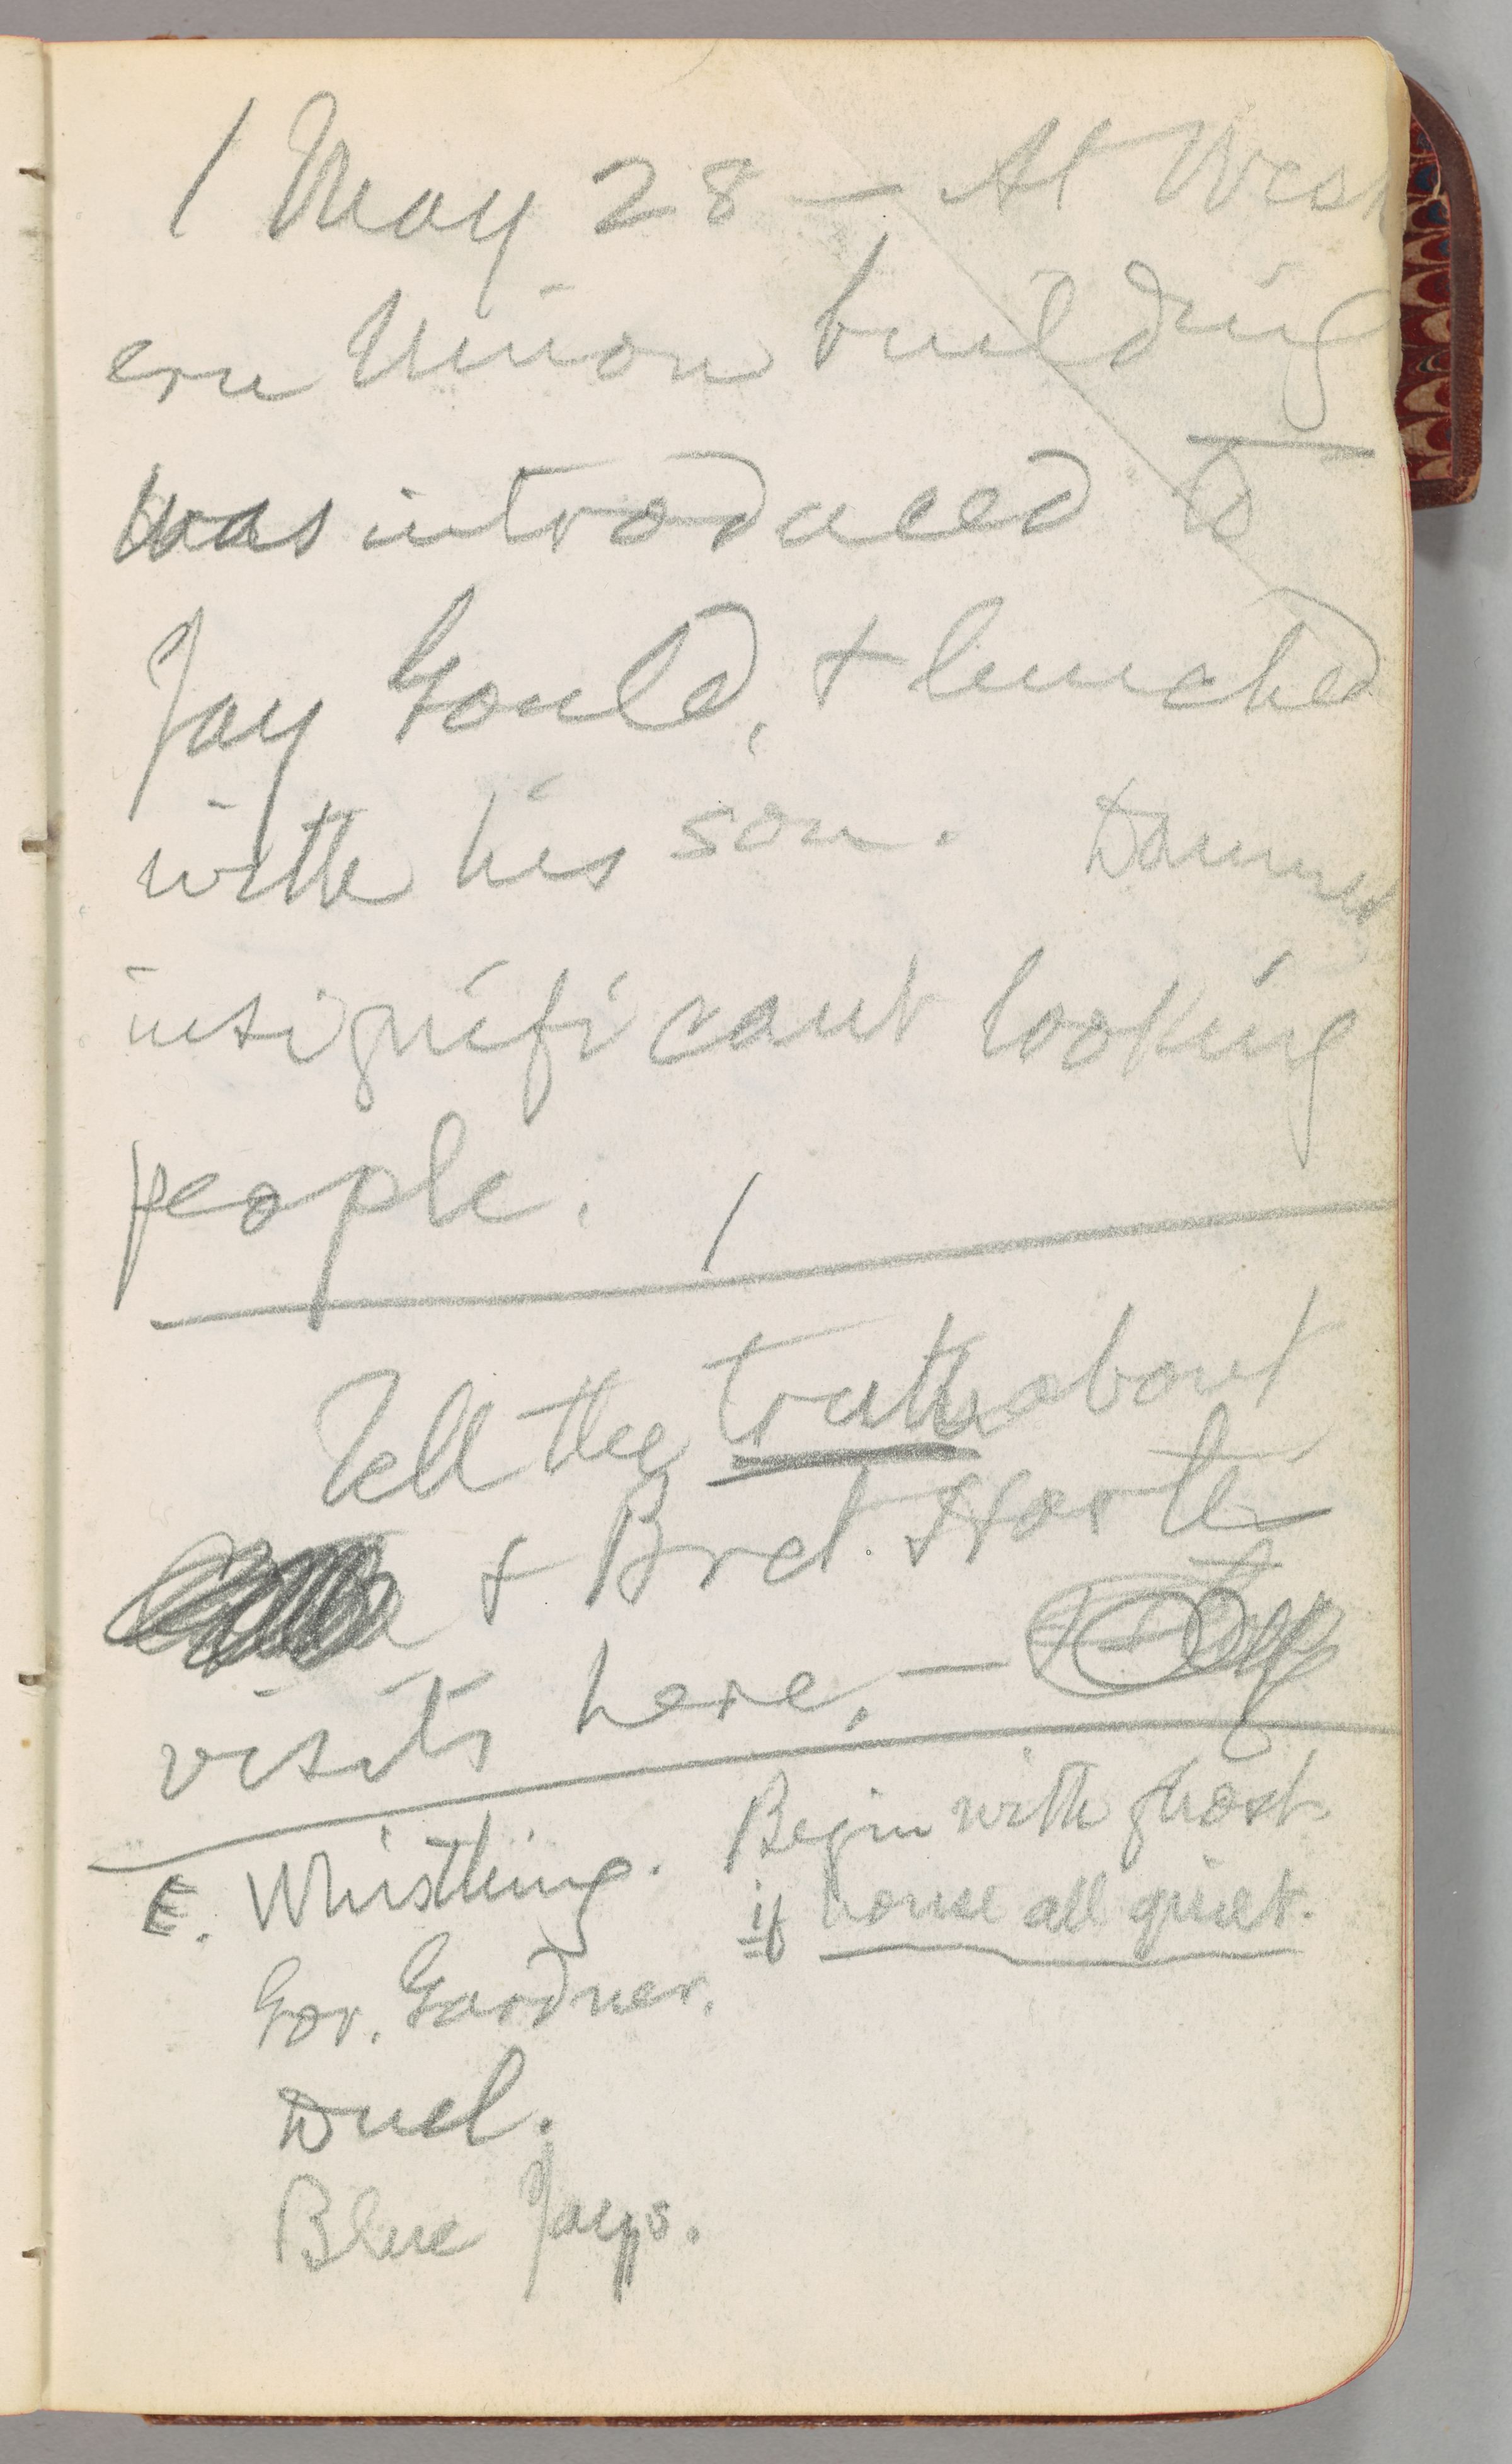 / May 28 — At West
ern Union building
was introduced to
Jay Gould, + lunched
with his son. Damned
insignificant looking
people. /
Tell the truth about
+ Bret Harte
visits here, —
E. Whistling. Begin with ghost
if house all quiet.
Gov. Gardner.
Duel.
Blue Jays.